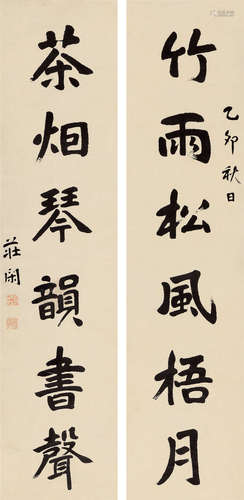 竹雨松風梧月
乙卯秋日
茶烟琴韻書聲
莊閑